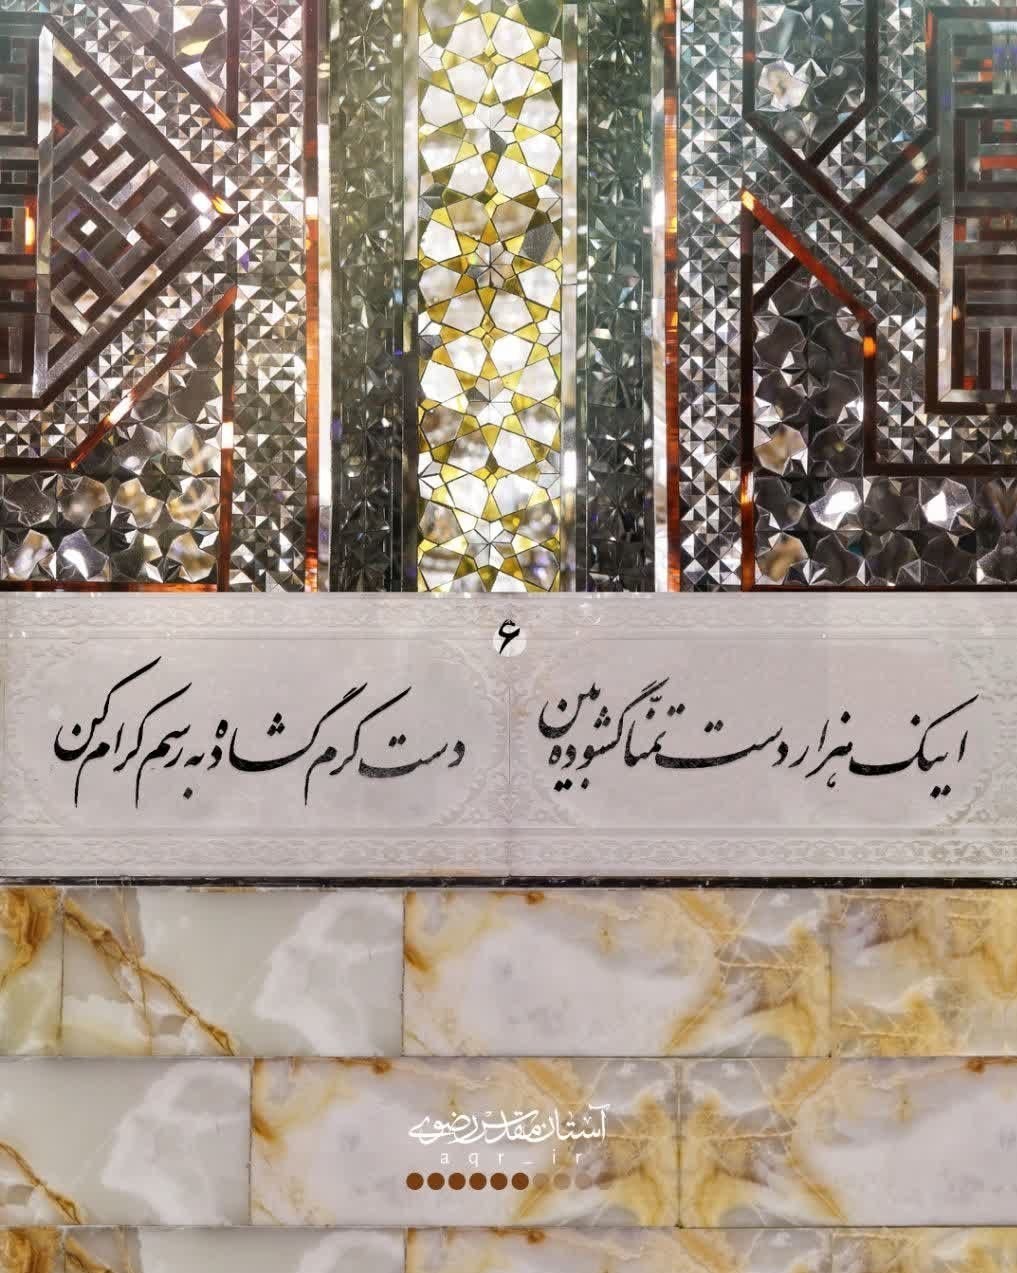 ۶
اینک هزار دست تمنّا گشوده بین
دست کرم گشاده به رسم کرام کن
آستان مقدس رضوی
aqr_ir